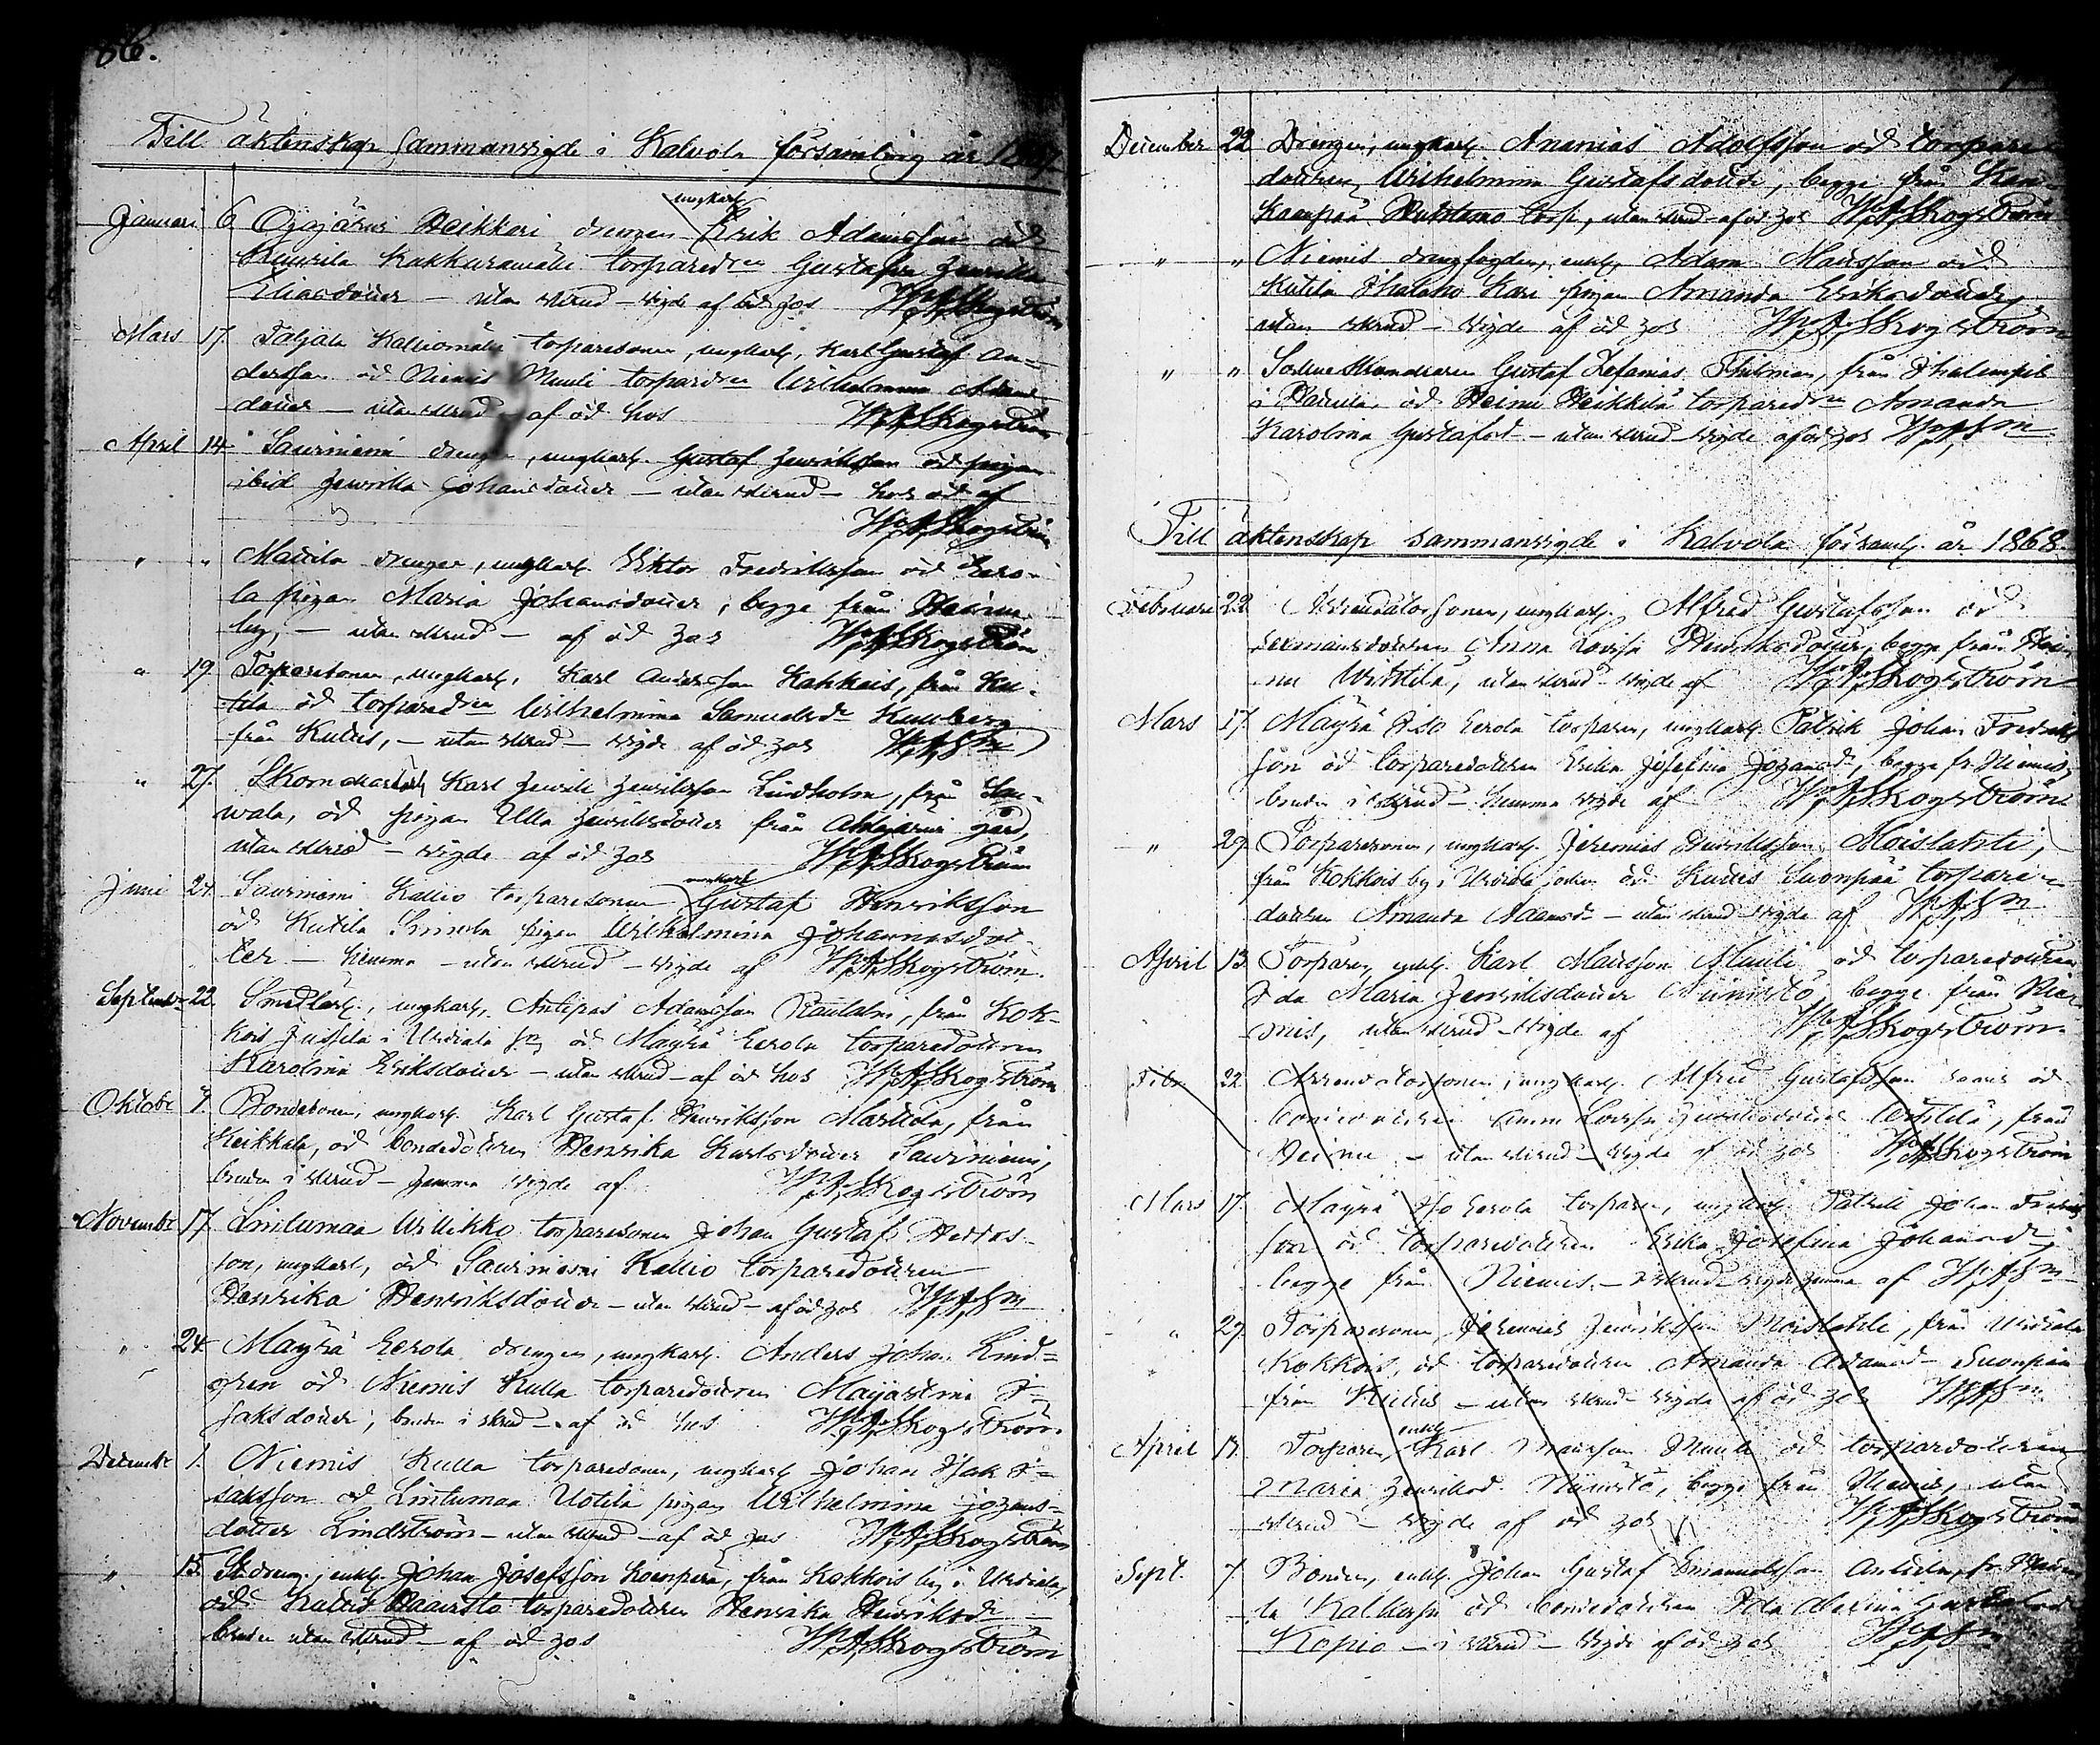 86.
Till äktenskap sammanvigde i Kalvola församling år 1867
Januari 6 Ojajärvi Heikkari drengen ungkarl Erik Adamsson och
Kakkuramäki torparedrn Gustafva Henrika
Eliasdotter – utan skrud – vigde af och hos WASkogström
Mars 17. Taljala Kalliomäki torparesonen, ungkarl, Karl Gustaf An-
dersson och Niemis Muuli torparedrn Wilhelmina
dotter – utan skrud – af och hos WASkogström
April 14 Saurniemi drengen, ungkarl. Gustaf Henriksson och pigan
ibid Henrika Johansdotter – utan skrud – hos och af
WASkogström
" " Mattila drengen, ungkarl. Viktor Fredriksson och Eero-
la pigan Maria Johansdotter, begge från Heinu
by, – utan skrud – af och hos WASkogström
" 19 Torparesonen, ungkarl, Karl Andersson Kakkois, från Ku-
tila och torparedrn Wilhelmina Samuelsdr Kullberg
från Kutus, – utan skrud – vigde af och hos WASm
" 27. Skomakar Karl Henrik Henriksson Lindholm, från
wala, och pigan Ulla Henriksdotter från Ahlajärvi gård,
utan skrud – vigde af och hos WASkogström
Juni 24. Saurniemi Kallio torparesonen ungkarl Gustaf Henriksson
och Kutila Simola pigan Wilhelmina Johannesdot-
ter – hemma – utan skrud – vigde af WASkogström.
September 22. Smedlärl., ungkarl, Antipas Adamsson Rautalin, från Kok-
kois Jussila i Urdiala sn och Mäyrä Eerola torparedottren
Karolina Eriksdotter – utan skrud – af och hos WASkogström
Oktober Bondesonen, ungkarl. Karl Gustaf Henriksson Marttila, från
Keikkala, och bondedottren Henrika Karlsdotter Saurniemi,
bruden i skrud – hemma vigde af WASkogström
November 17 Lintumaa Willikko torparesonen Johan Gustaf
son, ungkarl, och Saurniemi Kallio torparedottren
Henrika Henriksdotter – utan skrud – af och hos WASm
" 24 Mäyrä Eerola drengen, ungkarl. Anders Johan Lind=
gren och Niemis Kulla torparedottren Majastina I=
saksdotter, bruden i skrud – af och hos WASkogström.
December 1. Niemis Kulla torparesonen, ungkarl Johan Isak I=
saksson och Lintumaa Uotila pigan Wilhelmina Johans=
dotter Lindström – utan skrud – af och hos WASkogström
" 15. drengen, enkl. Johan Josefsson Koenperä, från Kokkois by i Urdiala,
och Kutus Haavisto torparedottren Henrika Henriksdr –
bruden utan skrud – af och hos WASkogström
December 22 Drengen, ungkarl. Ananias Adolfsson och torpare
dottren Wilhelmina Gustafsdotter, begge från
torp, utan skrud – af och hos WASkogström
" " Niemis drengfogden, enkl. Adam Matsson och
Kutila Ihalaho Kari pigan Amanda Eriksdotter,
utan skrud – vigde af och hos WASkogström
" " Gustaf Zefanias Thilman, från
i och Heinu Heikkilä torparedrn Amanda
Karolina Gustafsd – utan skrud – vigde af och hos WASm
Till äktenskap sammanvigde i Kalvola församl. år 1868.
Februari 22 Arrendatorsonen, ungkarl. Alfred Gustafsson och
sexmansdottren Anna Lovisa Henriksdotter, begge från Hei-
nu Wittilä, utan skrud – vigde af WASkogström
Mars 17. Mäyrä Iso Eerola torparen, ungkarl. Patrik Johan Fredriks
son och torparedottren Erika Josefina Johansdr, begge fr. Niemis,
bruden i skrud – hemma vigde af WASkogström
" 29. Torparesonen, ungkarl. Jeremias Henriksson Moislahti,
från Kokkois by i Urdiala socken och Kutus Suonpää torpare=
dottren Amanda Adamsd – utan skrud – vigde af WASm
April 13. Torparen, enkl. Karl Matsson Muuli och torparedottren
Ida Maria Henriksdotter Niinistö begge från Nie-
mis, utan skrud – vigde af WASkogström.
Febr. 22. Arrendatorsonen, ungkarl. Alfred Gustafsson och
Anna Lovisa Henriksdotter Wittilä, från
Heinu – utan skrud – vigde af och hos WASkogström
Mars 17. Mäyrä Iso Eerola torparen, ungkarl Patrik Johan Fredriks
son och torparedottren Erika Josefina Johansdr,
begge från Niemis, – i skrud vigde hemma af WASm
" 29. Torparesonen Jeremias Henriksson Moislahti, från Urdiala
Kokkois, och torparedottren Amanda Adamsd – Suonpää
från Kutus – utan skrud – vigde af och hos WASm
April 13. Torparen, enkl Karl Matsson Muuli och torparedottren
Maria Henriksd. Niinistö, begge från Niemis, utan
skrud – vigde af och hos WASkogström
Sept. 7 Bonden, enkl. Johan Gustaf Emanuelsson
och bondedottren Ida Alexina
Kopio – i skrud – vigde af och hos WASm